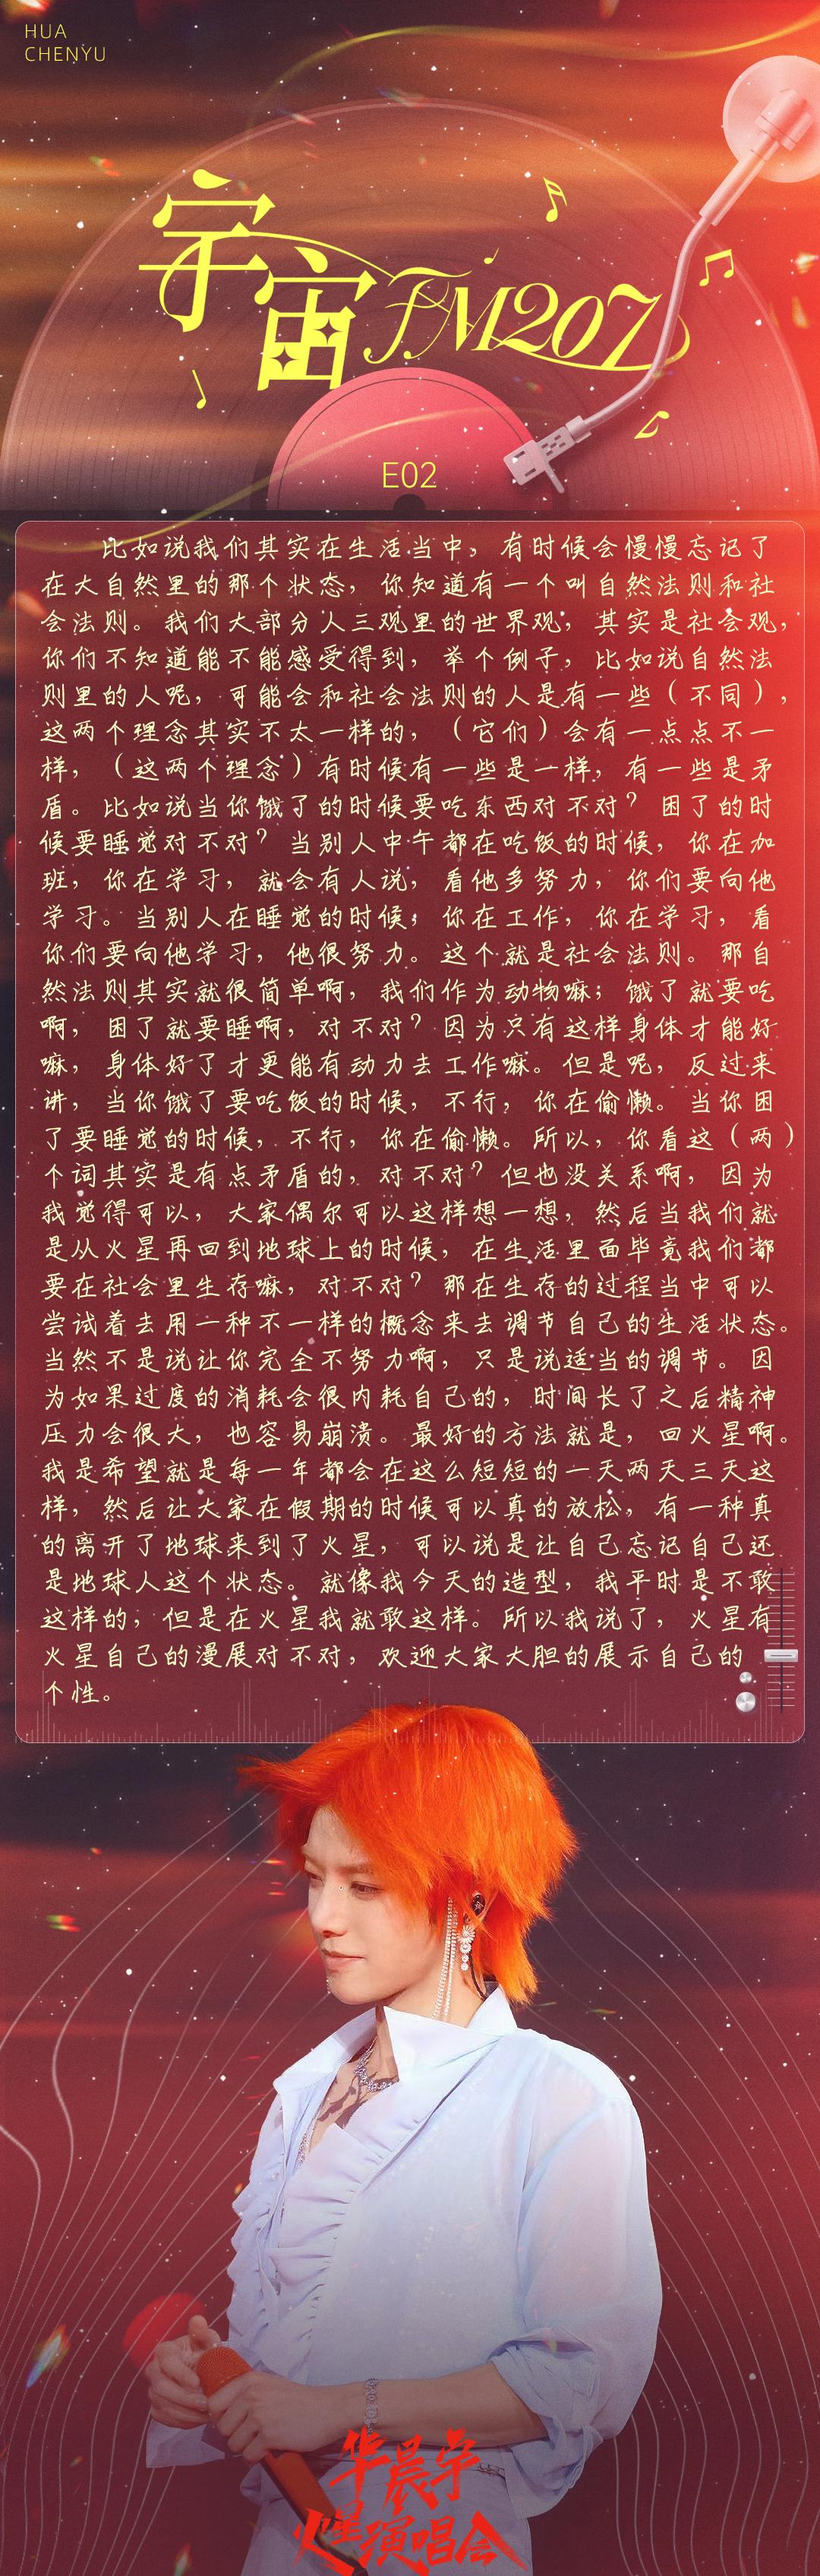 HUA
CHENYU
宇宙FM207
E02
比如说我们其实在生活当中，有时候会慢慢忘记了
在大自然里的那个状态，你知道有一个叫自然法则和社
会法则。我们大部分人三观里的世界观，其实是社会观，
你们不知道能不能感受得到，举个例子，比如说自然法
则里的人呢，可能会和社会法则的人是有一些（不同），
这两个理念其实不太一样的，（它们）会有一点点不一
样，（这两个理念）有时候有一些是一样，有一些是矛
盾。比如说当你饿了的时候要吃东西对不对？困了的时
候要睡觉对不对？当别人中午都在吃饭的时候，你在加
班，你在学习，就会有人说，看他多努力，你们要向他
学习。当别人在睡觉的时候，你在工作，你在学习，看
你们要向他学习，他很努力。这个就是社会法则。那自
然法则其实就很简单啊，我们作为动物嘛；饿了就要吃
啊，困了就要睡啊，对不对？因为只有这样身体才能好
嘛，身体好了才更能有动力去工作嘛。但是呢，反过来
讲，当你饿了要吃饭的时候，不行，你在偷懒。当你困
了要睡觉的时候，不行，你在偷懒。所以，你看这（两）
个词其实是有点矛盾的，对不对？但也没关系啊，因为
我觉得可以，大家偶尔可以这样想一想，然后当我们就
是从火星再回到地球上的时候，在生活里面毕竟我们都
要在社会里生存嘛，对不对？那在生存的过程当中可以
尝试着去用一种不一样的概念来去调节自己的生活状态。
当然不是说让你完全不努力啊，只是说适当的调节。因
为如果过度的消耗会很内耗自己的，时间长了之后精神
压力会很大，也容易崩溃。最好的方法就是，回火星啊。
我是希望就是每一年都会在这么短短的一天两天三天这
样，然后让大家在假期的时候可以真的放松，有一种真
的离开了地球来到了火星，可以说是让自己忘记自己还
是地球人这个状态。就像我今天的造型，我平时是不敢
这样的，但是在火星我就敢这样。所以我说了，火星有
火星自己的漫展对不对，欢迎大家大胆的展示自己的
个性。
华晨宇
火星演唱会